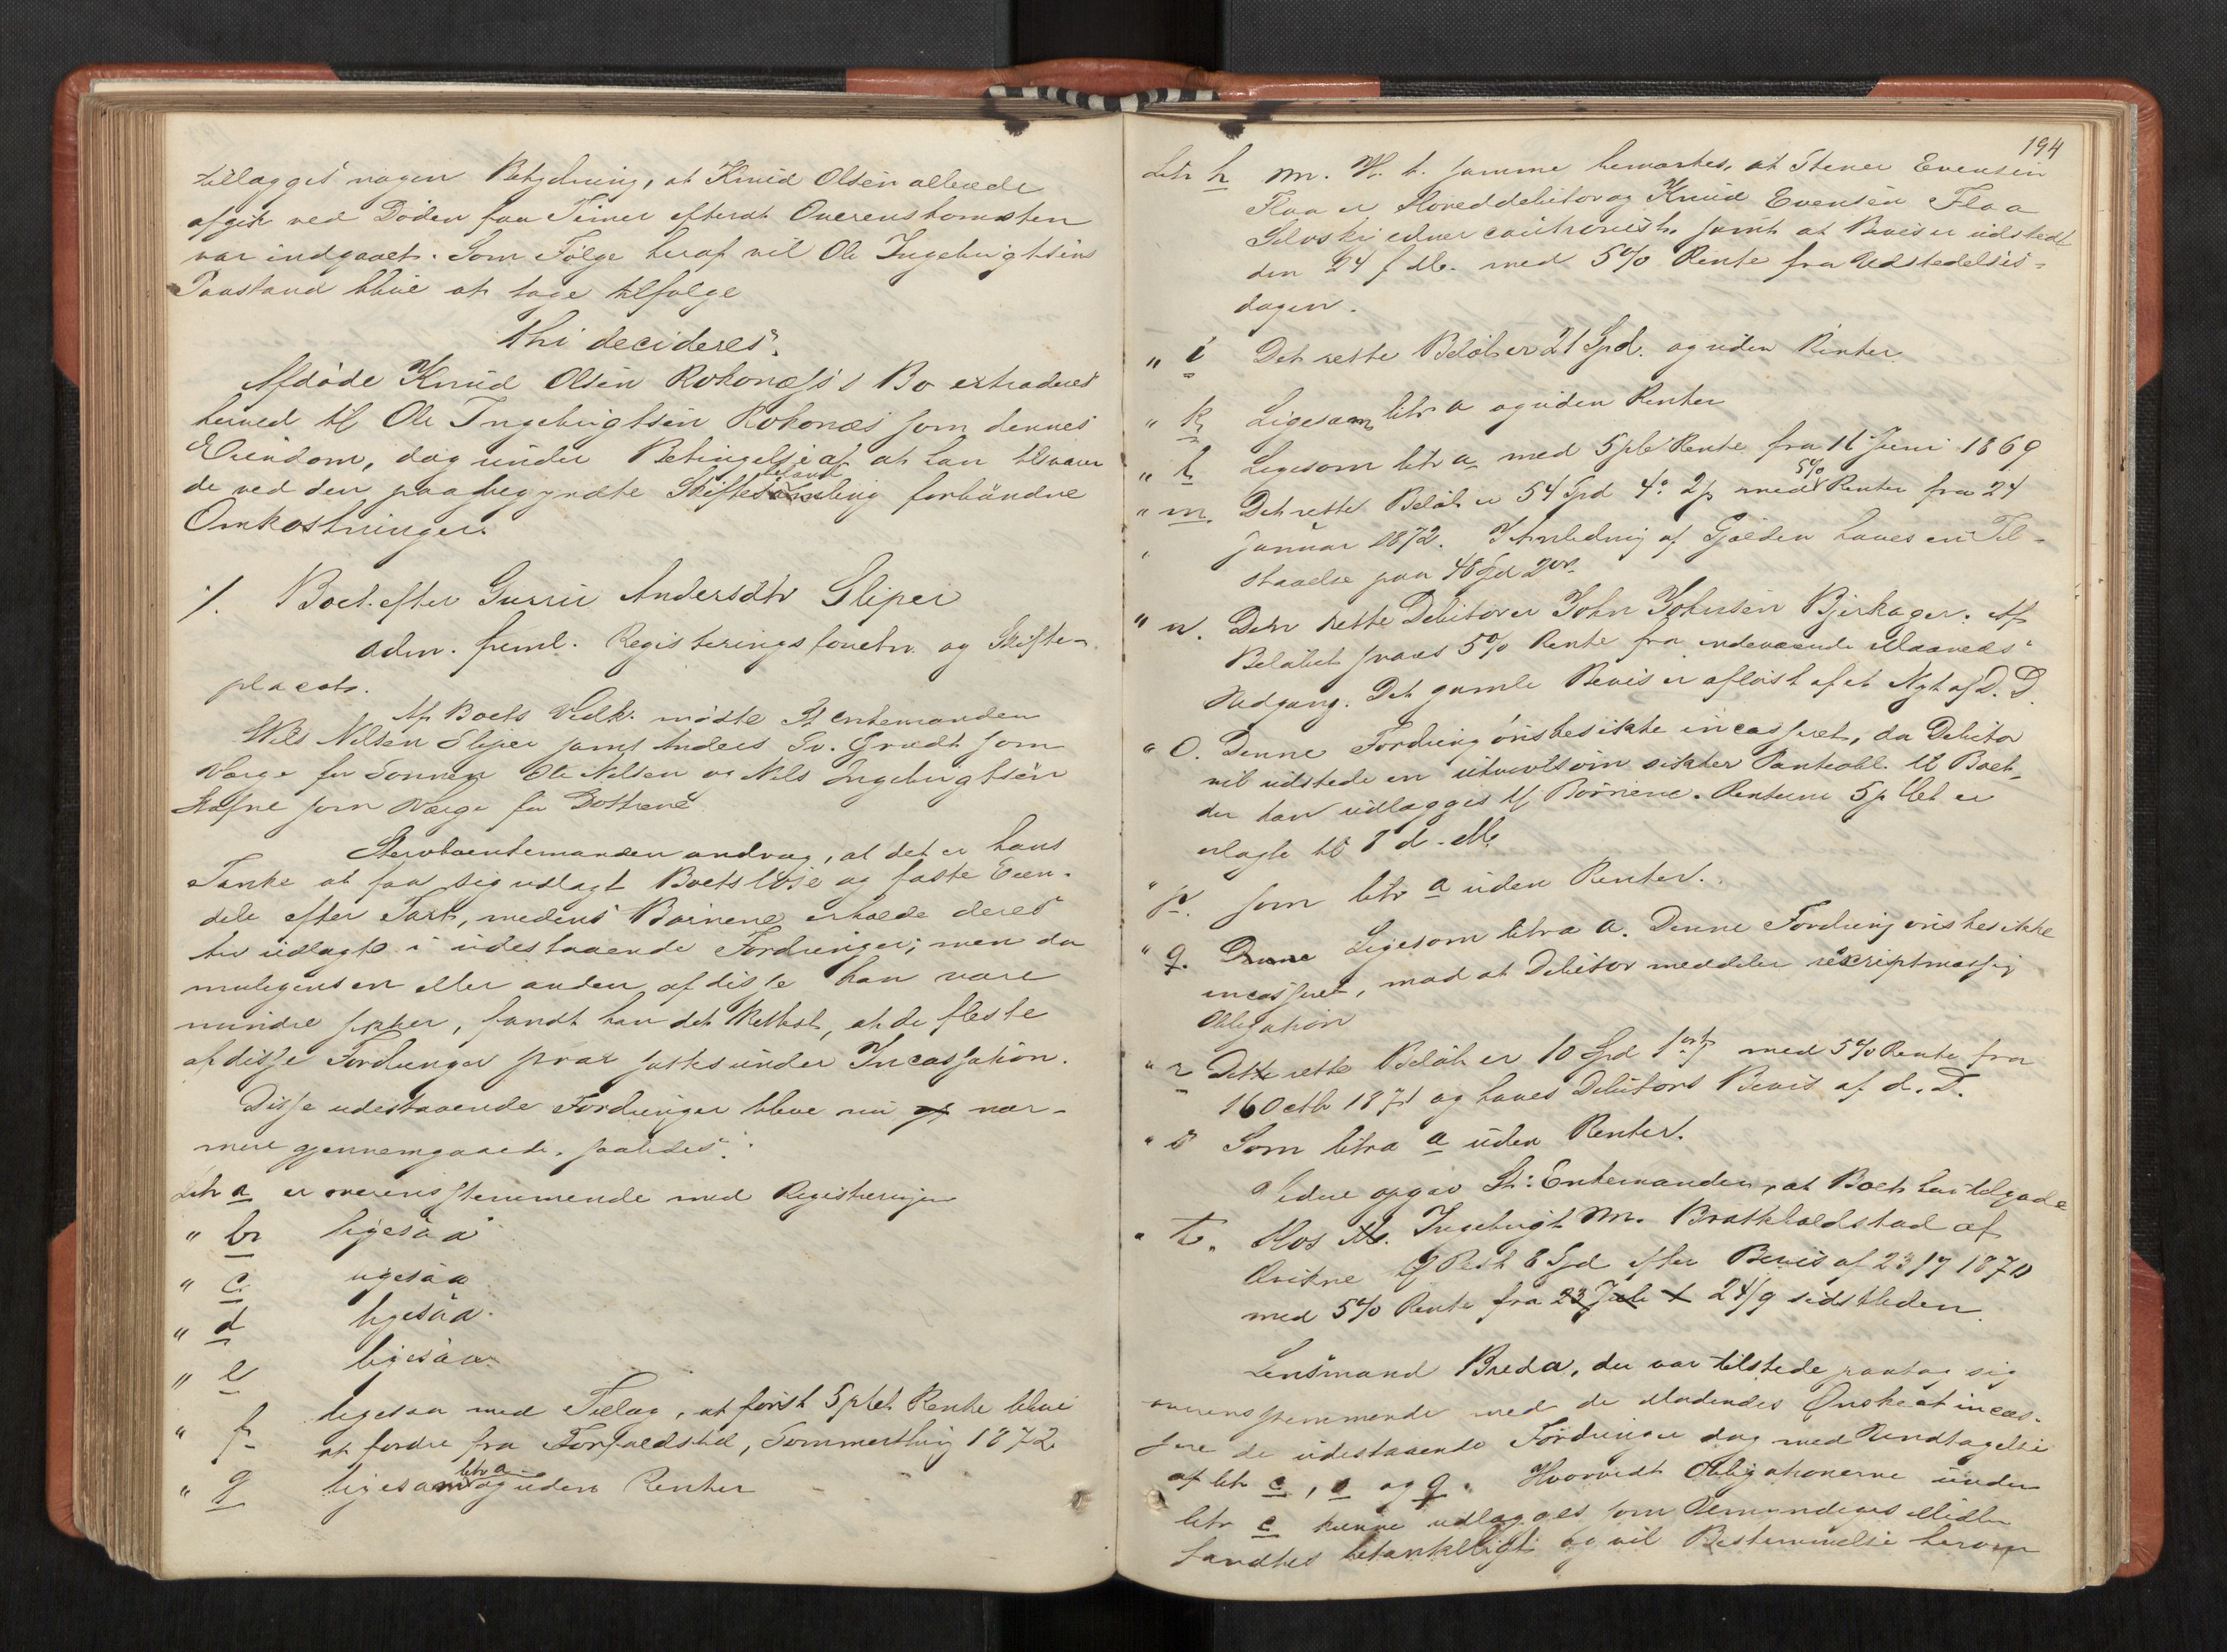 tillægges nogen Betydning, at Knud Olsen allerede
afgik ved Døden faa Timer efterat Overenskomsten
var indgaaet. Som Følge heraf vil Ole Ingebrigtsens
Paastand blive at tage tilfølge
Thi decideres:
Afdøde Knud Olsen Rokonæs's Bo extraderes
herved til Ole Ingebrigtsen Rokonæs som dennes
Eiendom, dog under Betingelse af at han tilsvarer
de ved den paabegyndte Skiftebehandling forbundne
Omkostninger.
1. Boet efter Gurrie Andersdtr Sliper
adm. freml. Registreringsforretn. og Skifte-
placat.
Af Boets Vedk. mødte Enkemanden
Nils Nilsen Sliper samt Anders Grødt som
Værge for Sønnen Ole Nilsen og Nils Ingebrigtsen
Stafne som Værge for Døttrene
Stervboenkemanden androg, at det er hans
Tanke at faa sig udlagt Boets løse og faste Eien-
dele efter Taxt, medens Børnene erholde deres
Arv udlagte i udestaaende Fordringer; men da
muligens en eller anden af disse kan være
mindre sikker, fandt han det Rettest, at de fleste
af disse Fordringer strax sattes under Incassation.
Disse udestaaende Fordringer bleve nu nær-
mere gjennemgaaede, saaledes:
Litr a er overensstemmende med Registreringen
" b ligesaa
" c ligesaa
" d ligesaa
" e ligesaa
" f ligesaa med Tillæg, at først 5 pCt Rente blive
at fordre fra Forfaldstid, Sommerthing 1872
" g ligesom litr a og uden Renter
194
Litr h M. H. t. samme bemærkes, at Stener Evensen
Flaa er Hoveddebitor og Knud Evensen Flaa
Selvskyldnercautionist, samt at Beviset er udstedt
den 24 f. M. med 5% Rente fra Udstedelses-
dagen.
" i Det rette Beløb er 21 Spd. og uden Renter
" k Ligesom litr a og uden Renter
" l Ligesom litr a med 5 pCt Rente fra 16 Juni 1869
" m Det rette Beløb er 54 Spd 4 2 s med 5% Renter fra 24
Januar 1872. I Anledning af Gjælden haves en Til-
staaelse paa 48 Spd 2
" n. Den rette Debitor er John Johnsen Bjerkager. Af
Beløbet svares 5% Rente fra indeværende Maaneds
Udgang. Det gamle Bevis er afløst af et Nyt af D. D.
" o. Denne Fordring ønskes ikke incasseret, da Debitor
vil udstede en utvivlsom sikker Panteobl. til Boet,
der kan udlægges til Børnene. Renterne 5 pCt er
erlagte til 8 d. M.
" p. som litr a uden Renter.
" q. Ligesom litra a. Denne Fordring ønskes ikke
incasseret, mod at Debitor meddeler rescriptmæssig
Obligation
" r Dette rette Beløb er 10 Spd 1 ort med 5% Rente fra
16 Octb 1871 og haves Debitors Bevis af d. D.
" s Som litra a uden Renter.
Videre opgav St: Enkemanden, at Boet har tilgode
" t. Hos Ingebrigt M. Bratholdstad af
Qvikne Rest 8 Spd efter Bevis af 23/7 1870
med 5% Rente fra 23 Juli 24/9 sidstleden.
Lensmand Breda, der var tilstede paatog sig
overensstemmende med de Mødendes Ønske at incas-
sere de udestaaende Fordringer dog med Undtagelse
af litr c, o og q. Hvorvidt Obligationerne under
litr c kunne udlægges som Umyndiges Midler
fandtes betænkeligt og vil Bestemmelse herom